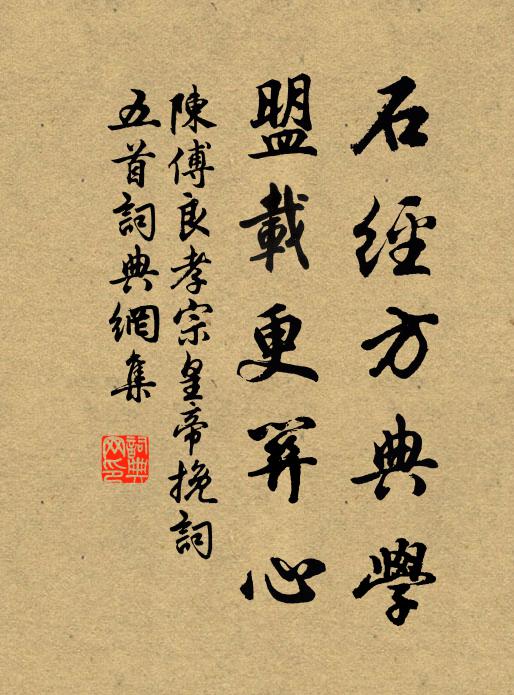 石經方典學
盟載更心
陳傅良孝宗皇帝挽詞
五首詞典網集
詞典網印